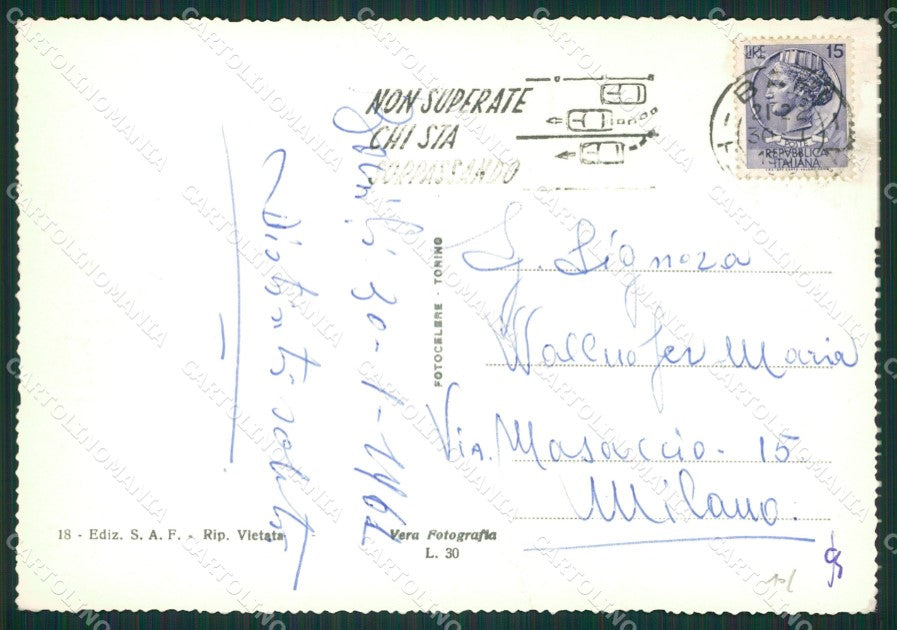 NON SUPERATE
CHI STA
SORPASSANDO
LIRE 15
POSTE
REPVBBLICA
ITALIANA
30-1-1962
Distinti saluti
FOTOCELERE - TORINO
G. Signora
Wallnofer Maria
Via. Masaccio. 15
Milano.
18 - Ediz. S. A. F. - Rip. Vietata
Vera Fotografia
L. 30
CARTOLINOMANIA